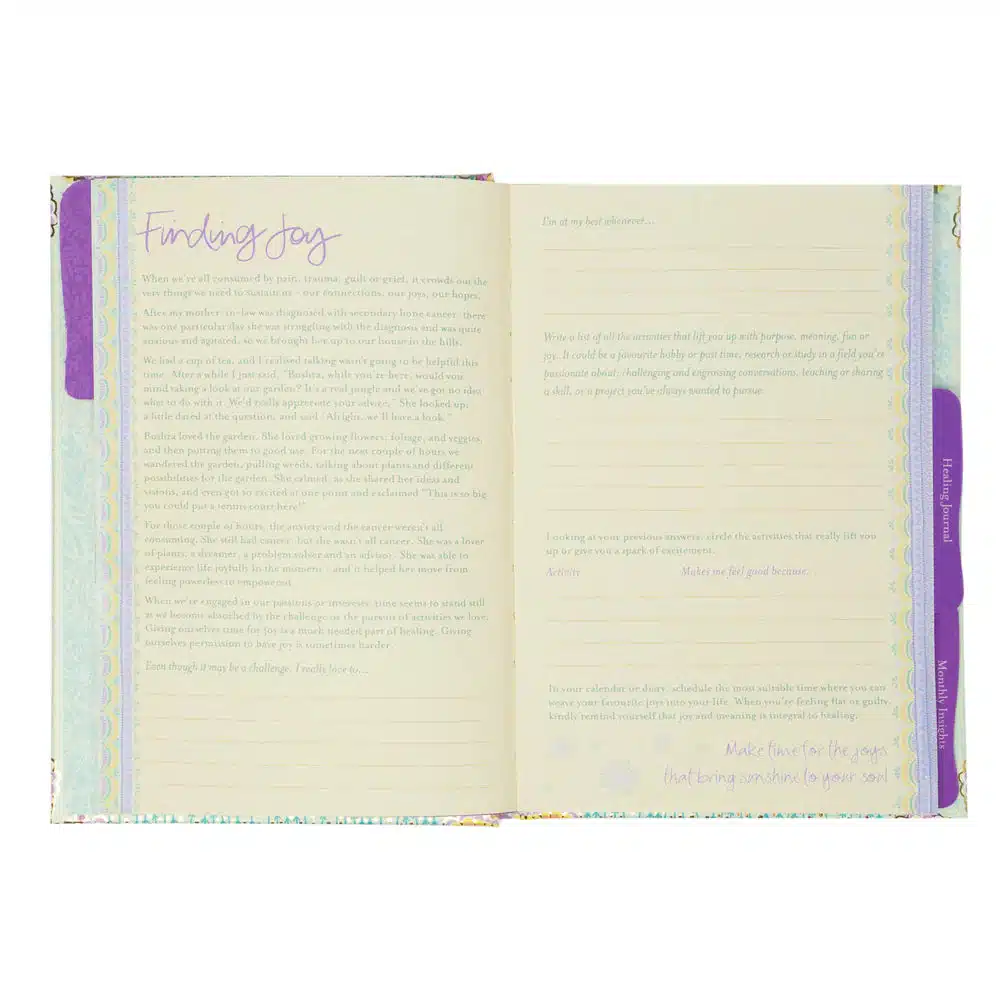 Finding Joy
When we're all consumed by pain, trauma, guilt or grief, it crowds out the
very things we need to sustain us - our connections, our joys, our hopes.
After my mother-in-law was diagnosed with secondary bone cancer, there
was one particular day she was struggling with the diagnosis and was quite
anxious and agitated, so we brought her up to our house in the hills.
We had a cup of tea, and I realised talking wasn't going to be helpful this
time. After a while I just said, "Bushra, while you're here, would you
mind taking a look at our garden? It's a real jungle and we've got no idea
what to do with it. We'd really appreciate your advice." She looked up,
a little dazed at the question, and said "Alright, we'll have a look."
Bushra loved the garden. She loved growing flowers, foliage, and veggies,
and then putting them to good use. For the next couple of hours we
wandered the garden, pulling weeds, talking about plants and different
possibilities for the garden. She calmed, as she shared her ideas and
visions, and even got so excited at one point and exclaimed "This is so big
you could put a tennis court here!"
For those couple of hours, the anxiety and the cancer weren't all
consuming. She still had cancer, but she wasn't all cancer. She was a lover
of plants, a dreamer, a problem solver and an advisor. She was able to
experience life joyfully in the moment - and it helped her move from
feeling powerless to empowered.
When we're engaged in our passions or interests, time seems to stand still
as we become absorbed by the challenge or the pursuit of activities we love.
Giving ourselves time for joy is a much needed part of healing. Giving
ourselves permission to have joy is sometimes harder.
Even though it may be a challenge, I really love to...
I'm at my best whenever...
Write a list of all the activities that lift you up with purpose, meaning, fun or
joy. It could be a favourite hobby or past time, research or study in a field you're
passionate about, challenging and engrossing conversations, teaching or sharing
a skill, or a project you've always wanted to pursue.
Looking at your previous answers, circle the activities that really lift you
up or give you a spark of excitement.
Activity Makes me feel good because...
In your calendar or diary, schedule the most suitable time where you can
weave your favourite joys into your life. When you're feeling flat or guilty,
kindly remind yourself that joy and meaning is integral to healing.
Make time for the joys
that bring sunshine to your soul
Healing Journal
Monthly Insights